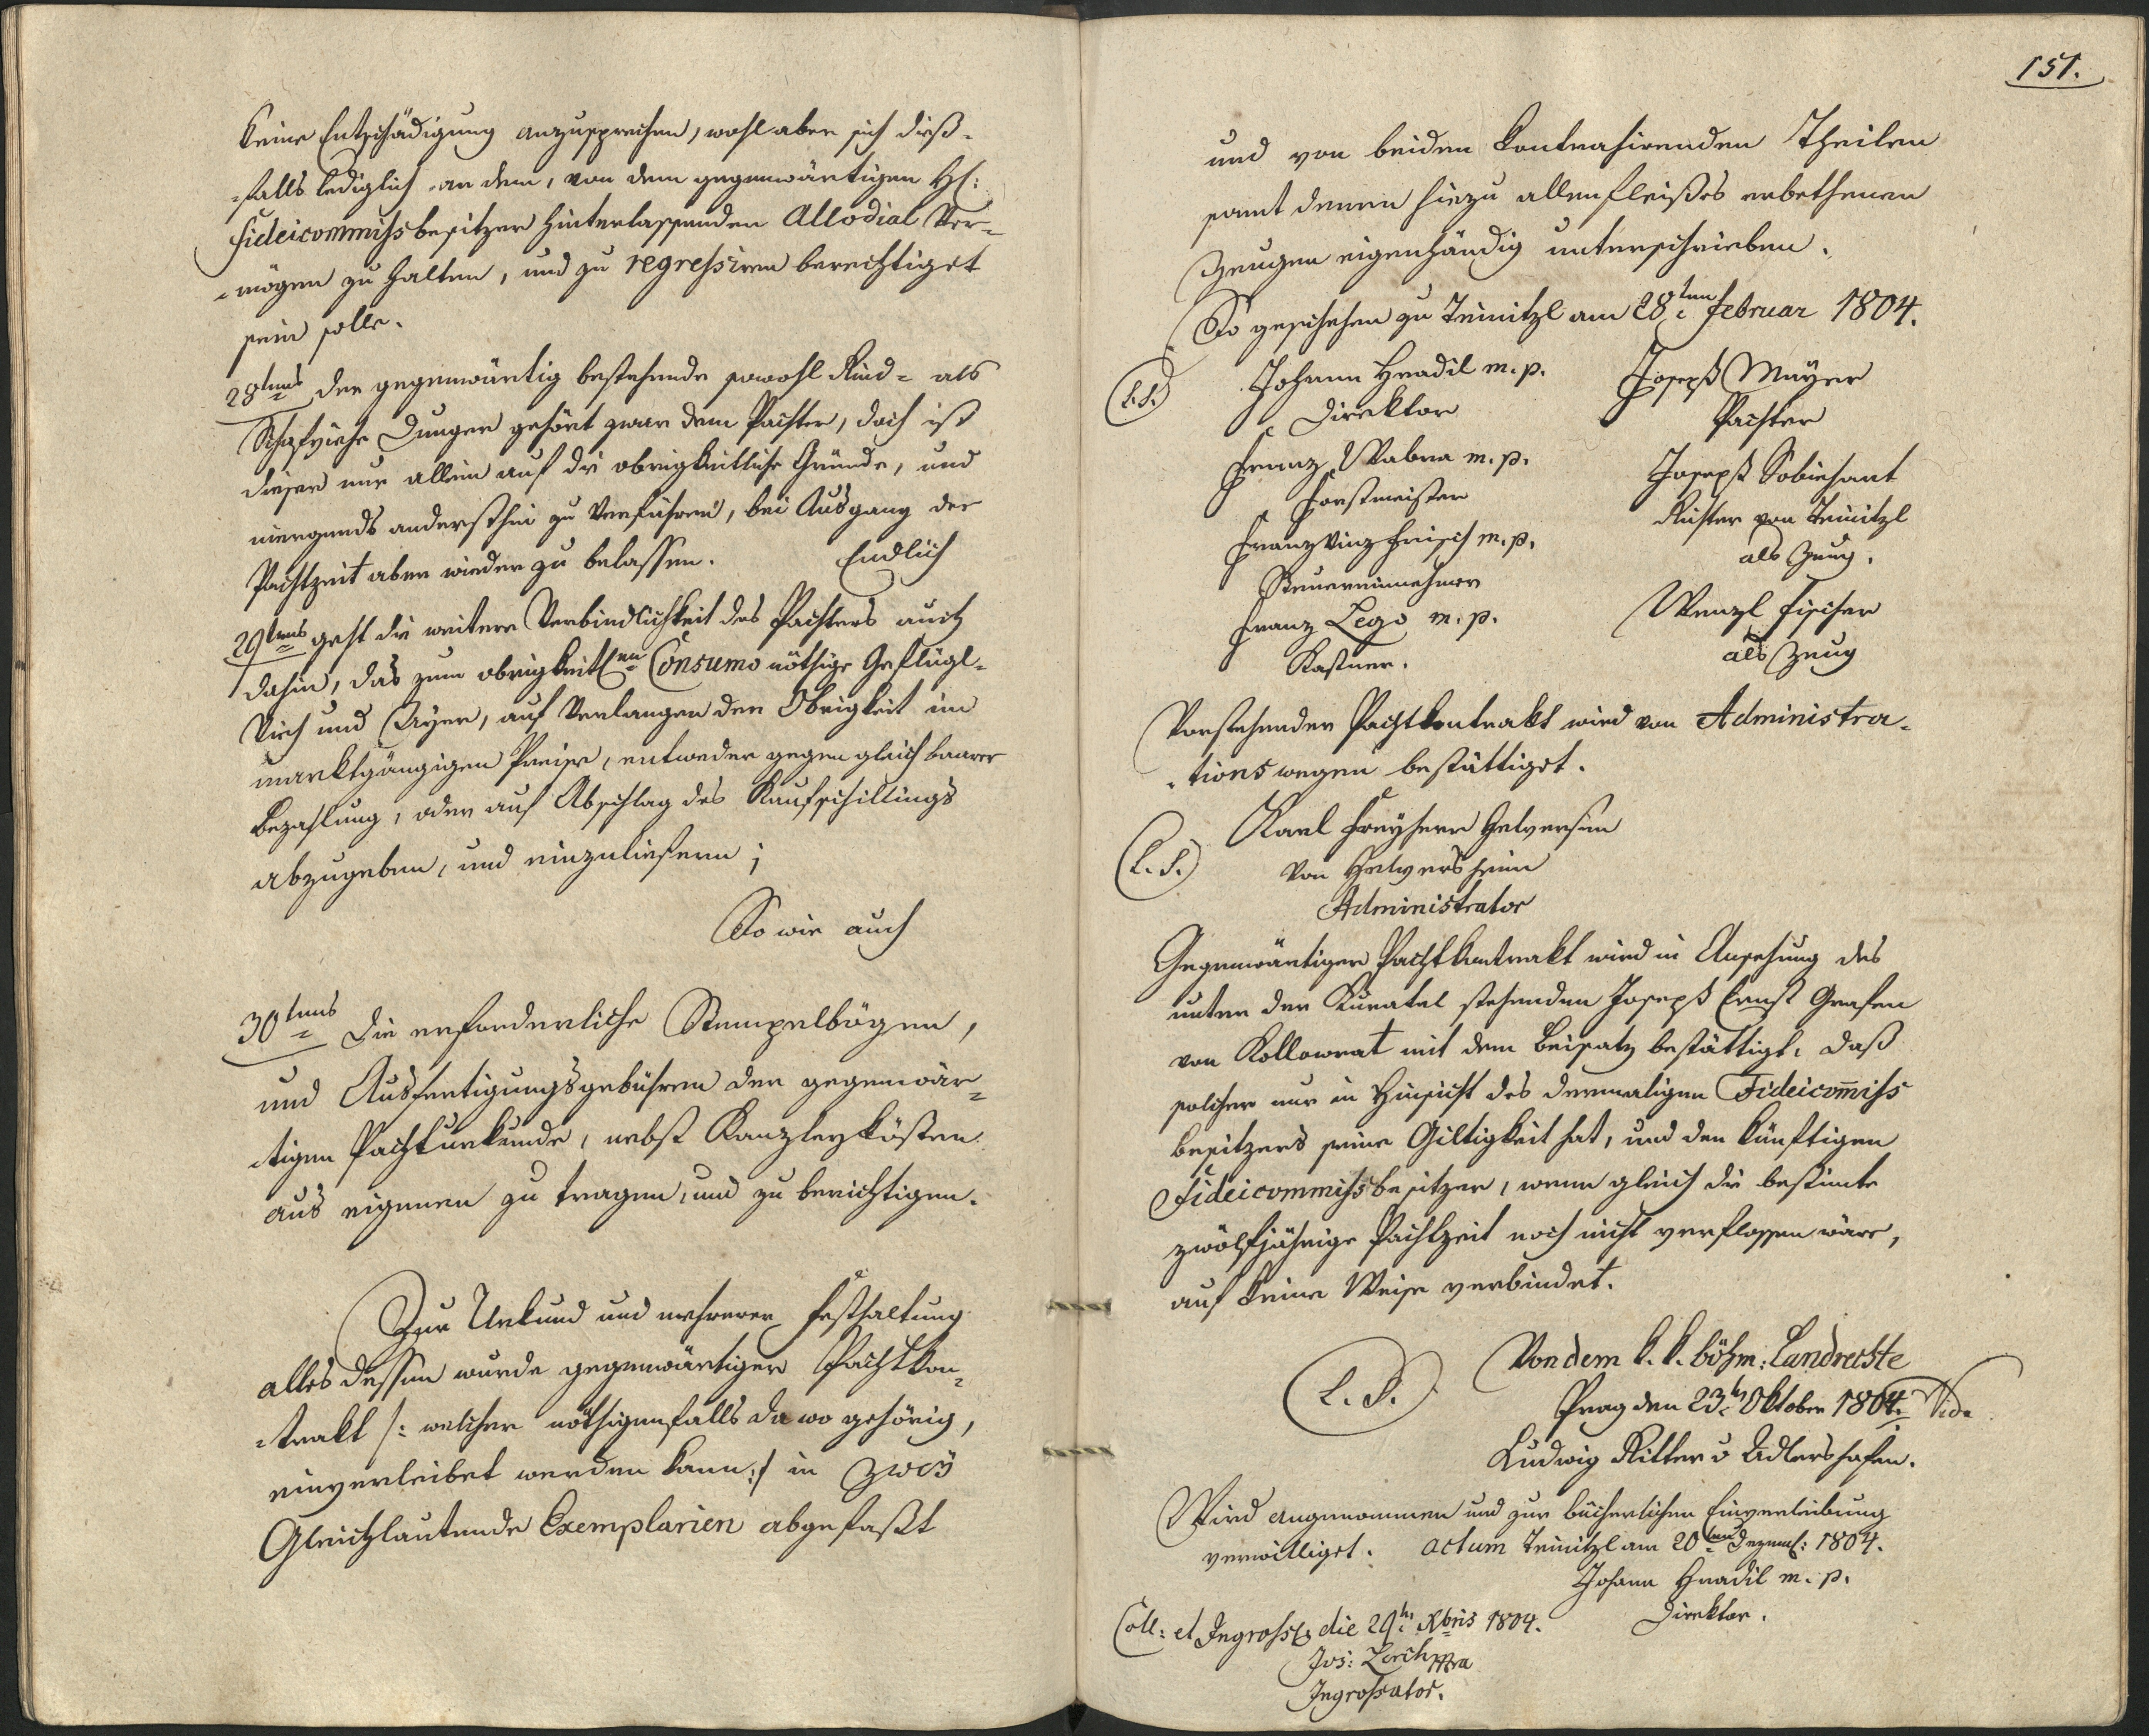 keine Entschädigung anzusprechen, wohl aber sich dieß-
-falls lediglich an dem, von dem gegenwärtigen H:
Fideicommißbesitzer hinterlassenden Allodial Ver-
-mögen zu halten, und zu regreßiren berechtiget
sein solle.
28tens der gegenwärtig bestehende sowohl Rind- als
Schafviehe Dunger gehört zwar dem Pachter, doch ist
dieser nur allein auf die obrigkeitliche Gründe, und
niergends anderst hin zu verführen, bei Ausgang der
Pachtzeit aber wieder zu belassen. Endlich
29tens geht die weitere Verbindlichkeit des Pachters auch
dahin, das zum obrigkeitlen Consumo nöthige Geflügl-
Vieh und Ayer, auf Verlangen der Obrigkeit im
marktgängigen Preise, entweder gegen gleich baarer
Bezahlung, oder auf Abschlag des Kaufschillings
abzugeben, und einzuliefern;
So wie auch
30tens Die erforderliche Stempelbögen,
und Ausfertigungsgebühren der gegenwär-
-tigen Pachturkunde, nebst Kanzleykösten
aus eigenen zu tragen, und zu berichtigen.
Zur Urkund und mehrerer Festhaltung
alles dessen wurde gegenwärtiger Pachtkon-
-trakt /: welcher nöthigenfalls da wo gehörig,
einverleibet werden kann :/ in zwey
Gleichlautende Exemplarien abgefaßt
151.
und von beiden kontrahirenden Theilen
samt denen hiezu allenfleißes erbethenen
Zeugen eigenhändig unterschrieben.
So geschehen zu Teinitzl am 28ten Februar 1804.
(L.S.) Johann Hradil m. p. Joseph Mayer
Direktor Pachter
Franz Wabra m. p. Joseph Sobiehart
Forstmeister Richter von Teinitzl
Franz Vinz Frisch m. p. als Zeug.
Steuereinnehmer
Franz Lego m. p. Wenzl Fischer
Kastner. als Zeug
Vorstehender Pachtkontrakt wird von Administra-
-tionswegen bestättiget.
Karl Freyherr Helversen
(L.S.) von Helversheim
Administrator
Gegenwärtiger Pachtkontrakt wird in Ansehung des
unter der Kuratel stehenden Joseph Ernst Grafen
von Kollowrat mit dem Beisatz bestättigt, daß
solcher nur in Hinsicht des dermaligen Fideicom̄iß
besitzers seine Giltigkeit hat, und den künftigen
Fideicommißbesitzer, wenn gleich die bestimte
zwölfjährige Pachtzeit noch nicht verflossen wäre,
auf keine Weise verbindet.
Von dem k. k. böhm: Landrechte
(L.S.) Prag den 23t Oktober 1804.
Ludwig Ritter v Adlershofen.
Wird angenommen und zur bücherlichen Einverleibung
verwilliget. Actum Teinitzl am 20ten Dezemb: 1804.
Johann Hradil m. p.
Direktor.
Coll: et Ingross die 29t Xbris 1804.
Jos: Lerch mpra
Ingroßator.